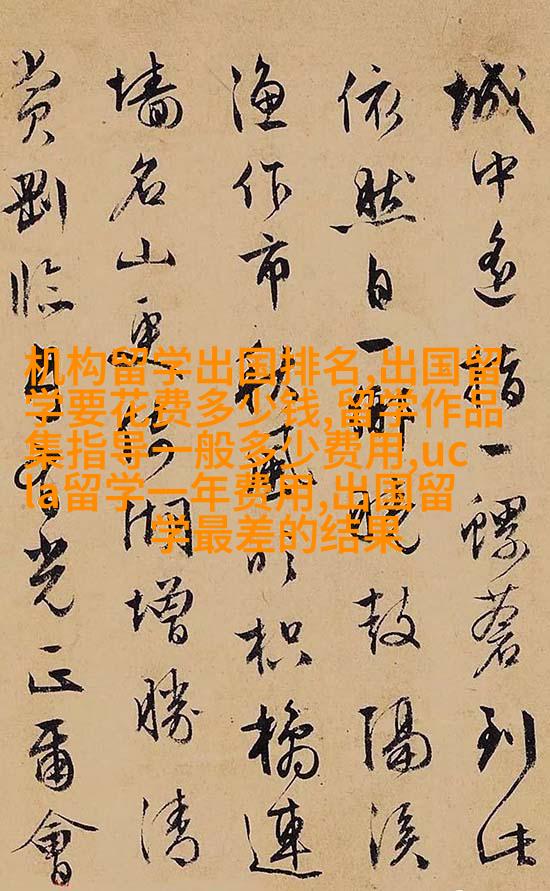 城中遙指一螺蒼到此
依然自一
晚鼓隔溪
漁作市
枳橘連
墻名山更
湖增勝清
賞劉臨
光正爾會
机构留学出国排名,出国留
学要花费多少钱,留学作品
集指导一般多少费用,uc
la留学一年费用,出国留
学最差的结果